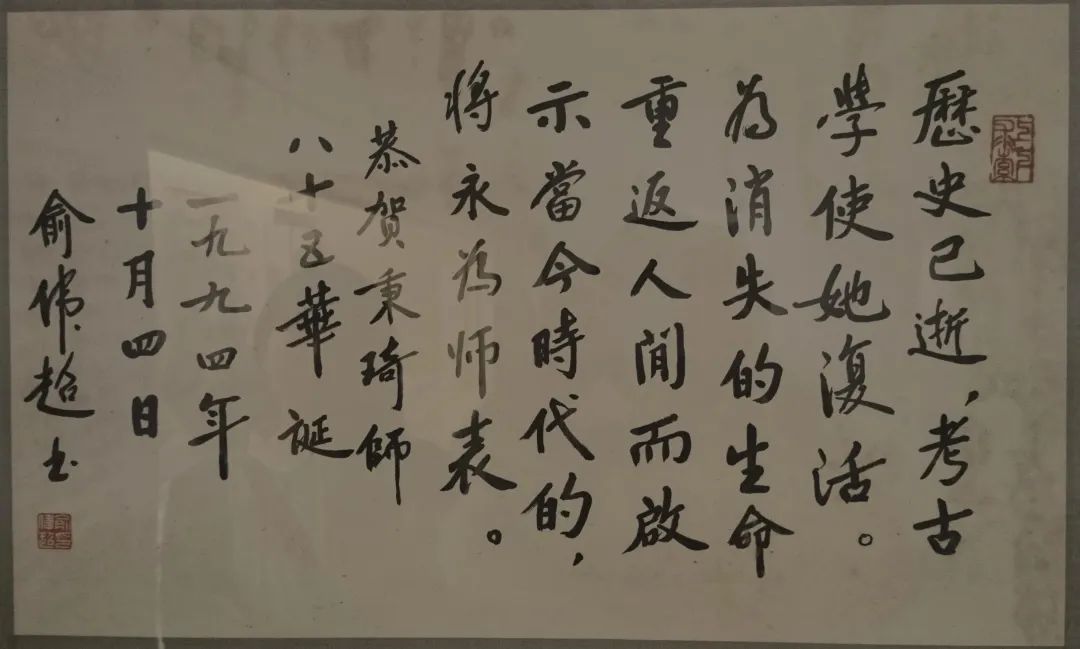 歷史已逝，考古
學使她復活。
為消失的生命
重返人間而啟
示當今時代的，
將永為师表。
恭賀秉琦師
八十五華誕
一九九四年
十月四日
俞偉超书